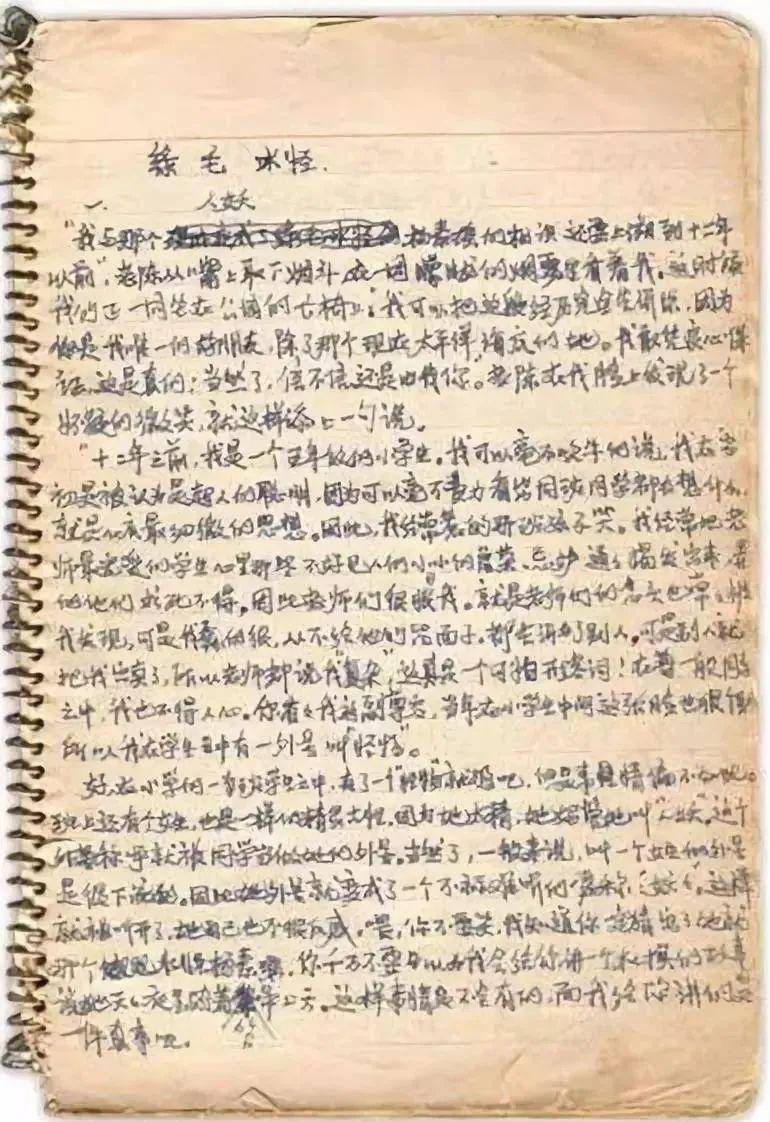 绿毛水怪
一、 人妖
“我与那个 杨素瑶的相识还要上溯到十二年
以前”，老陈从嘴上取下烟斗，在一团朦胧的烟雾里看着我。这时候
我们正一同坐在公园的长椅上：我可以把这段经历完全告诉你，因为
你是我唯一的好朋友，除了那个现在太平洋海底的她。我敢凭良心保
证，这是真的；当然了，信不信还是由你”。老陈在我脸上发现了一个
怀疑的微笑，就这样添上一句说。
“十二年之前，我是一个五年级的小学生。我可以毫不吹牛的说，我在当
初是被认为是超人的聪明，因为可以毫不费力看出同班同学都在想什么，
就是心底最细微的思想。因此，我经常 的那班孩子笑。我经常把老
师最宠爱的学生心里那些不好见人的小小的虚荣、忌妒通通揭发出来，
他们求死不得。因此老师们很恨我。就是老师们的 也常常被
我发现，可是我 的很，从不给他们留面子。都告诉了别人。可是别人就
把我出卖了，所以老师都说我“复杂”，这真是一个可怕的形容词！在着一般同学
之中，我也不得人心。你看看我这副尊容，当年在小学生中间这张脸也很
所以我在学生中有一外号叫“怪物”。
好，在小学的一 班学生之中，有了一个“怪物”就够吧，但是事情偏不如此。
班上还有个女生，也是一样的精灵古怪，因为她太精，她妈管她叫“人妖”。这个
称呼就被同学当做她的外号。当然了，一般来说，叫一个女生的外号
是很下流的。因此她外号就变成了一个不 难听的昵称“妖妖”。这样
就 叫开了，她自己也不很反感。喂，你不要笑，我知道你 猜出了她就
那个 水怪杨素瑶，你千万不要 以为我会给你讲一个 的故事
说她天天夜里骑着 上天。这样事情是不会有的，而我给你讲的是
一件真事呢。